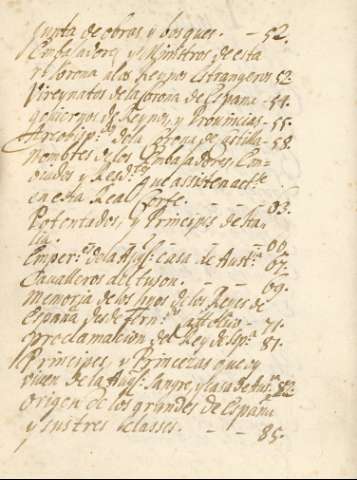 Junta de obras, y bosques. - 52.
Embaxadores y Ministros de esta
Corona a los Reynos Estrangeros 52
Vireynatos de la Corona de España - 54.
goviernos de Reynos, y Provincias - 55.
Arcobisp.os de la Corona de Castilla - 58.
Nombres de los Embaxadores, En-
viados y Resid.tes que assisten act.te
en esta Real Corte. - - - 63.
Potentados, y Principes de Ita-
lia. - - - 66
Emper.es de la Aug.a casa de Aust.a 67.
Cavalleros del tuson. - - 69.
Memoria de los hijos de los Reyes de
España, desde Fern.do catholico - 71.
proclamacion del Rey de Esp.a 81.
Principes, y Princezas que oy
viven de la Aug.a sangre, y casa de Aus.a 82
Origen de los grandes de España
y sus tres classes. - - - 85.